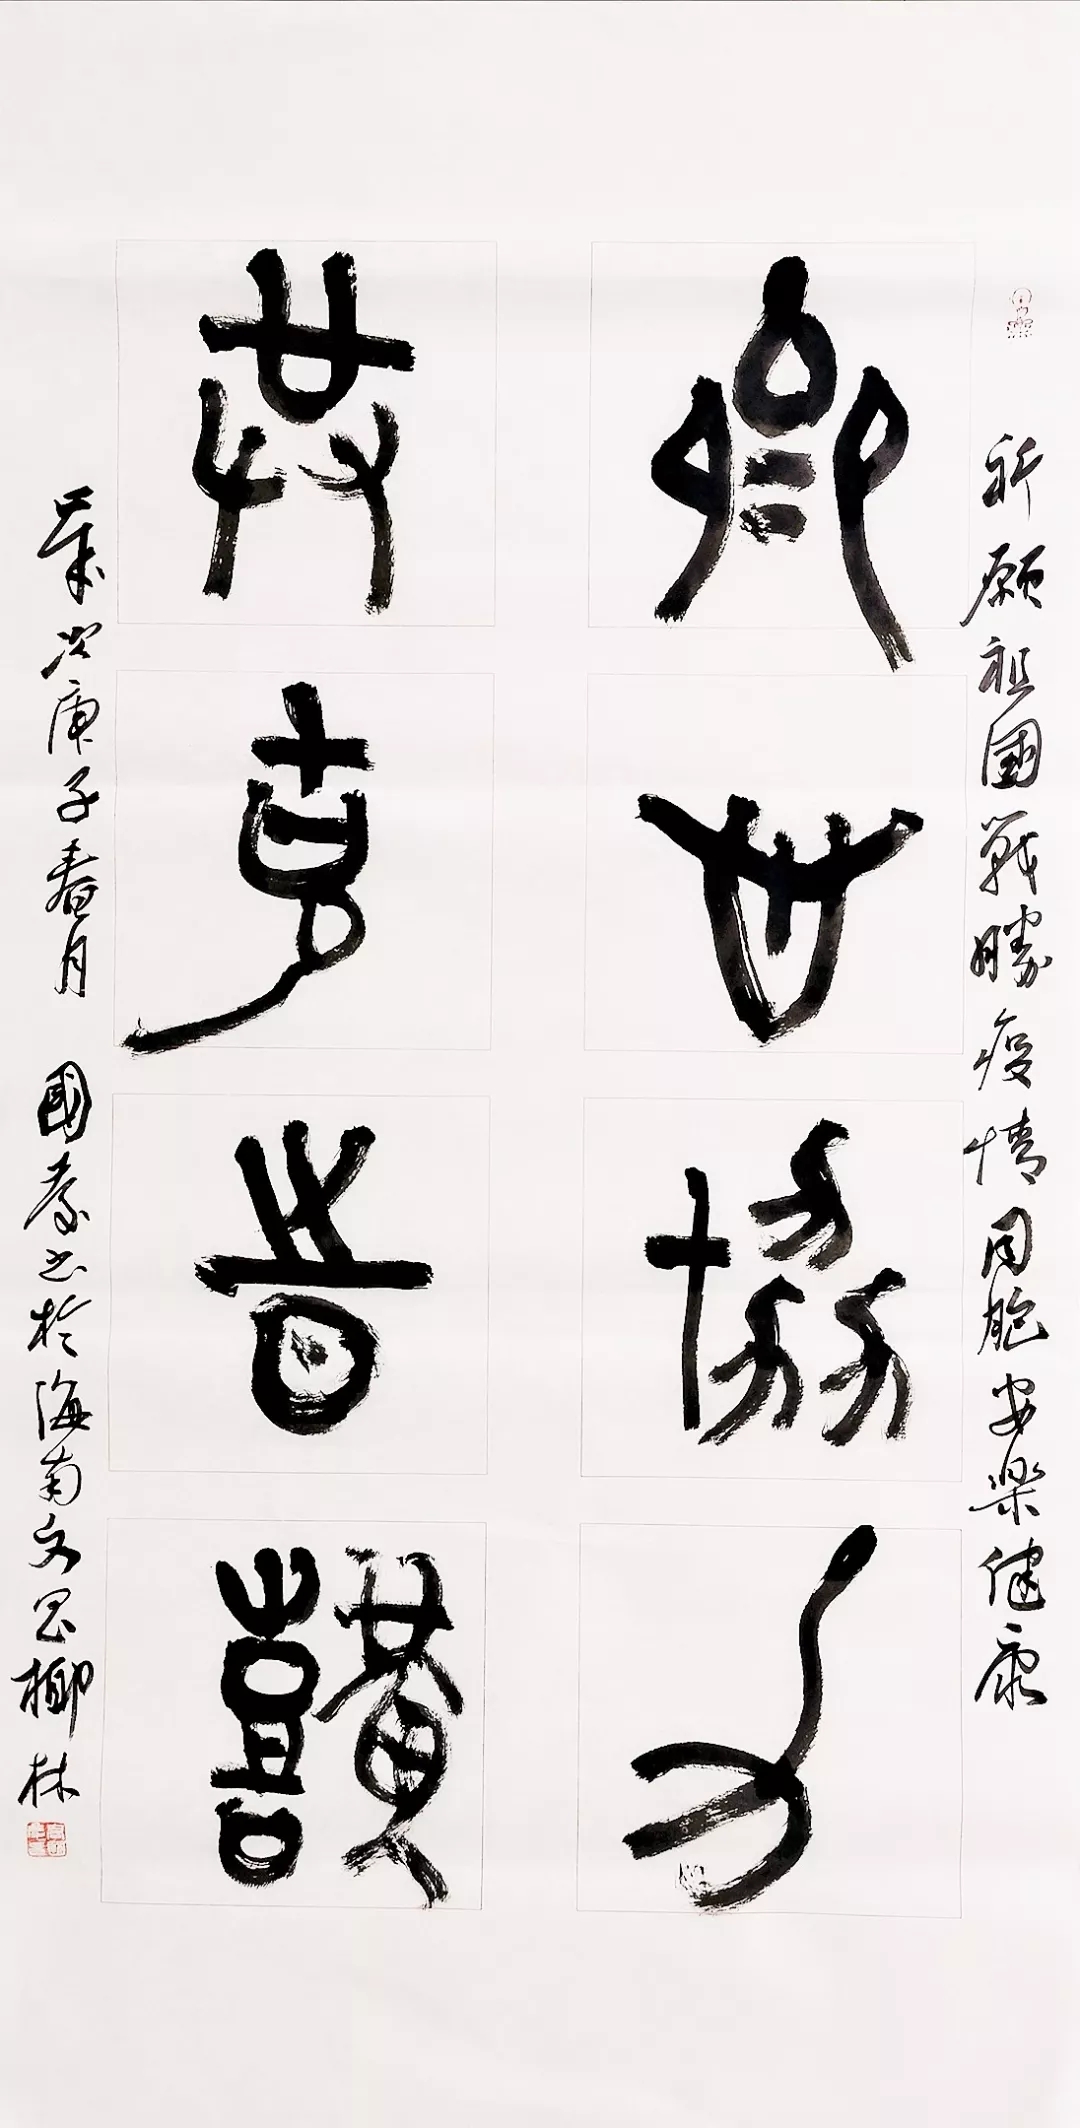 祈願祖國戰勝疫情同胞安樂健康
齊心協力
共克時艱
歲次庚子春月 國書於海南文昌椰林